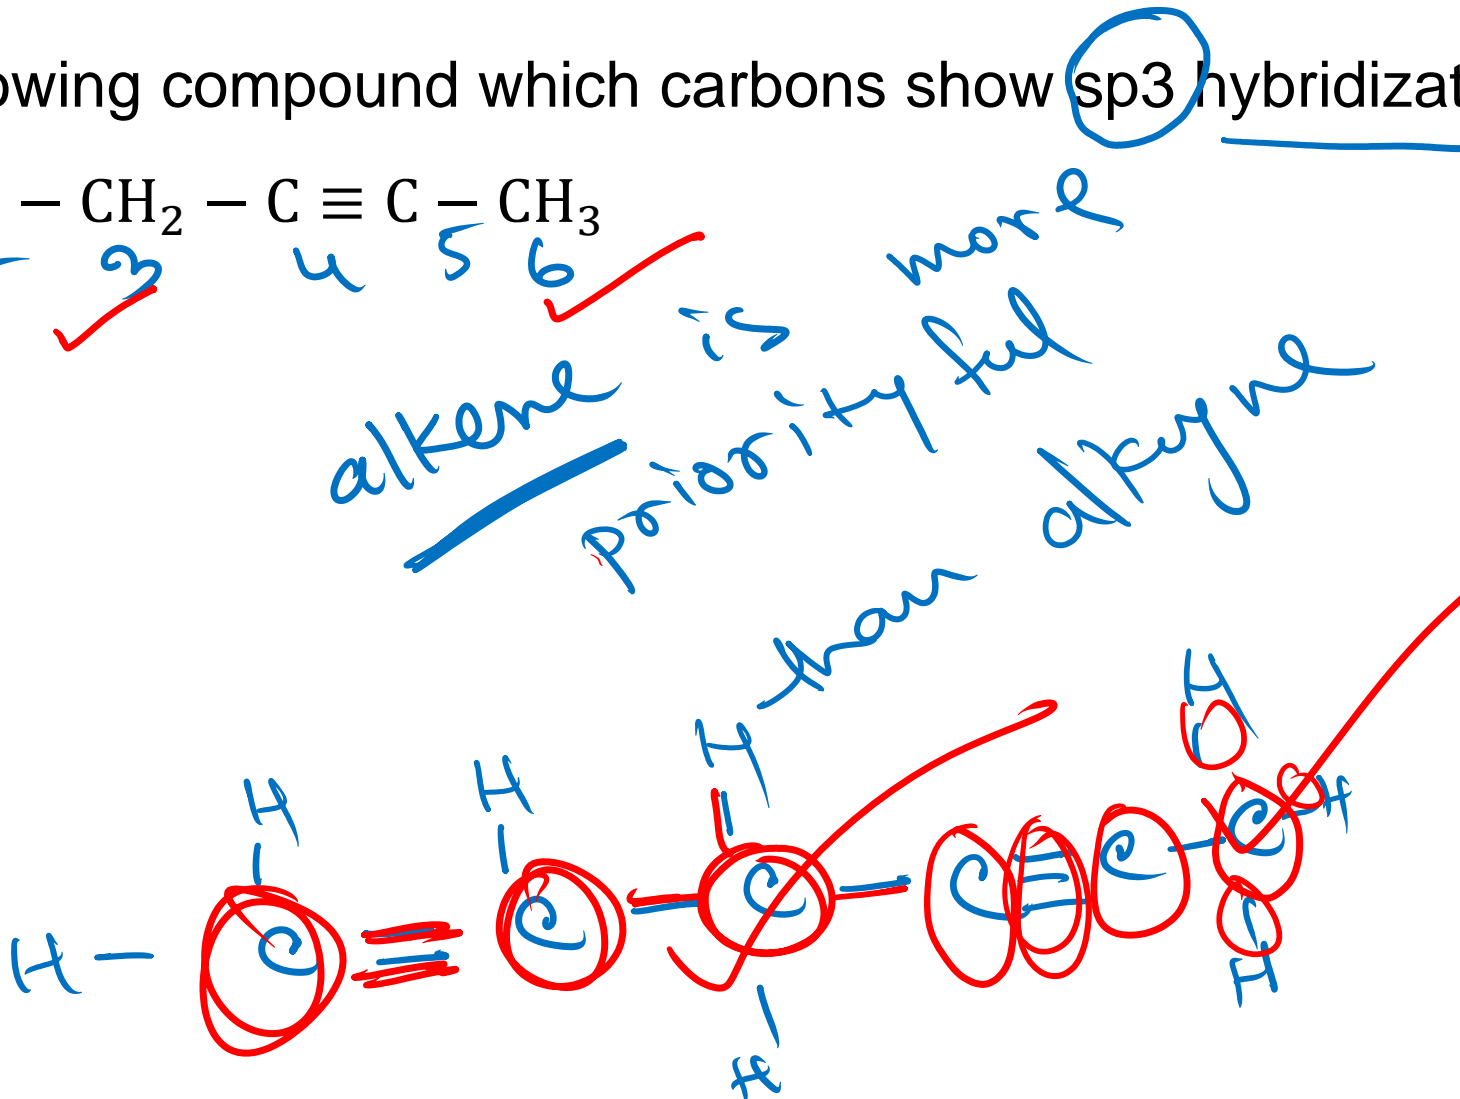 owing compound which carbons show sp3 hybridizat
– CH₂ – C ≡ C – CH₃
3 4 5 6
alkene is more
priorityful
than alkyne
H H H H
H – C = C – C – C ≡ C – C – H
H H